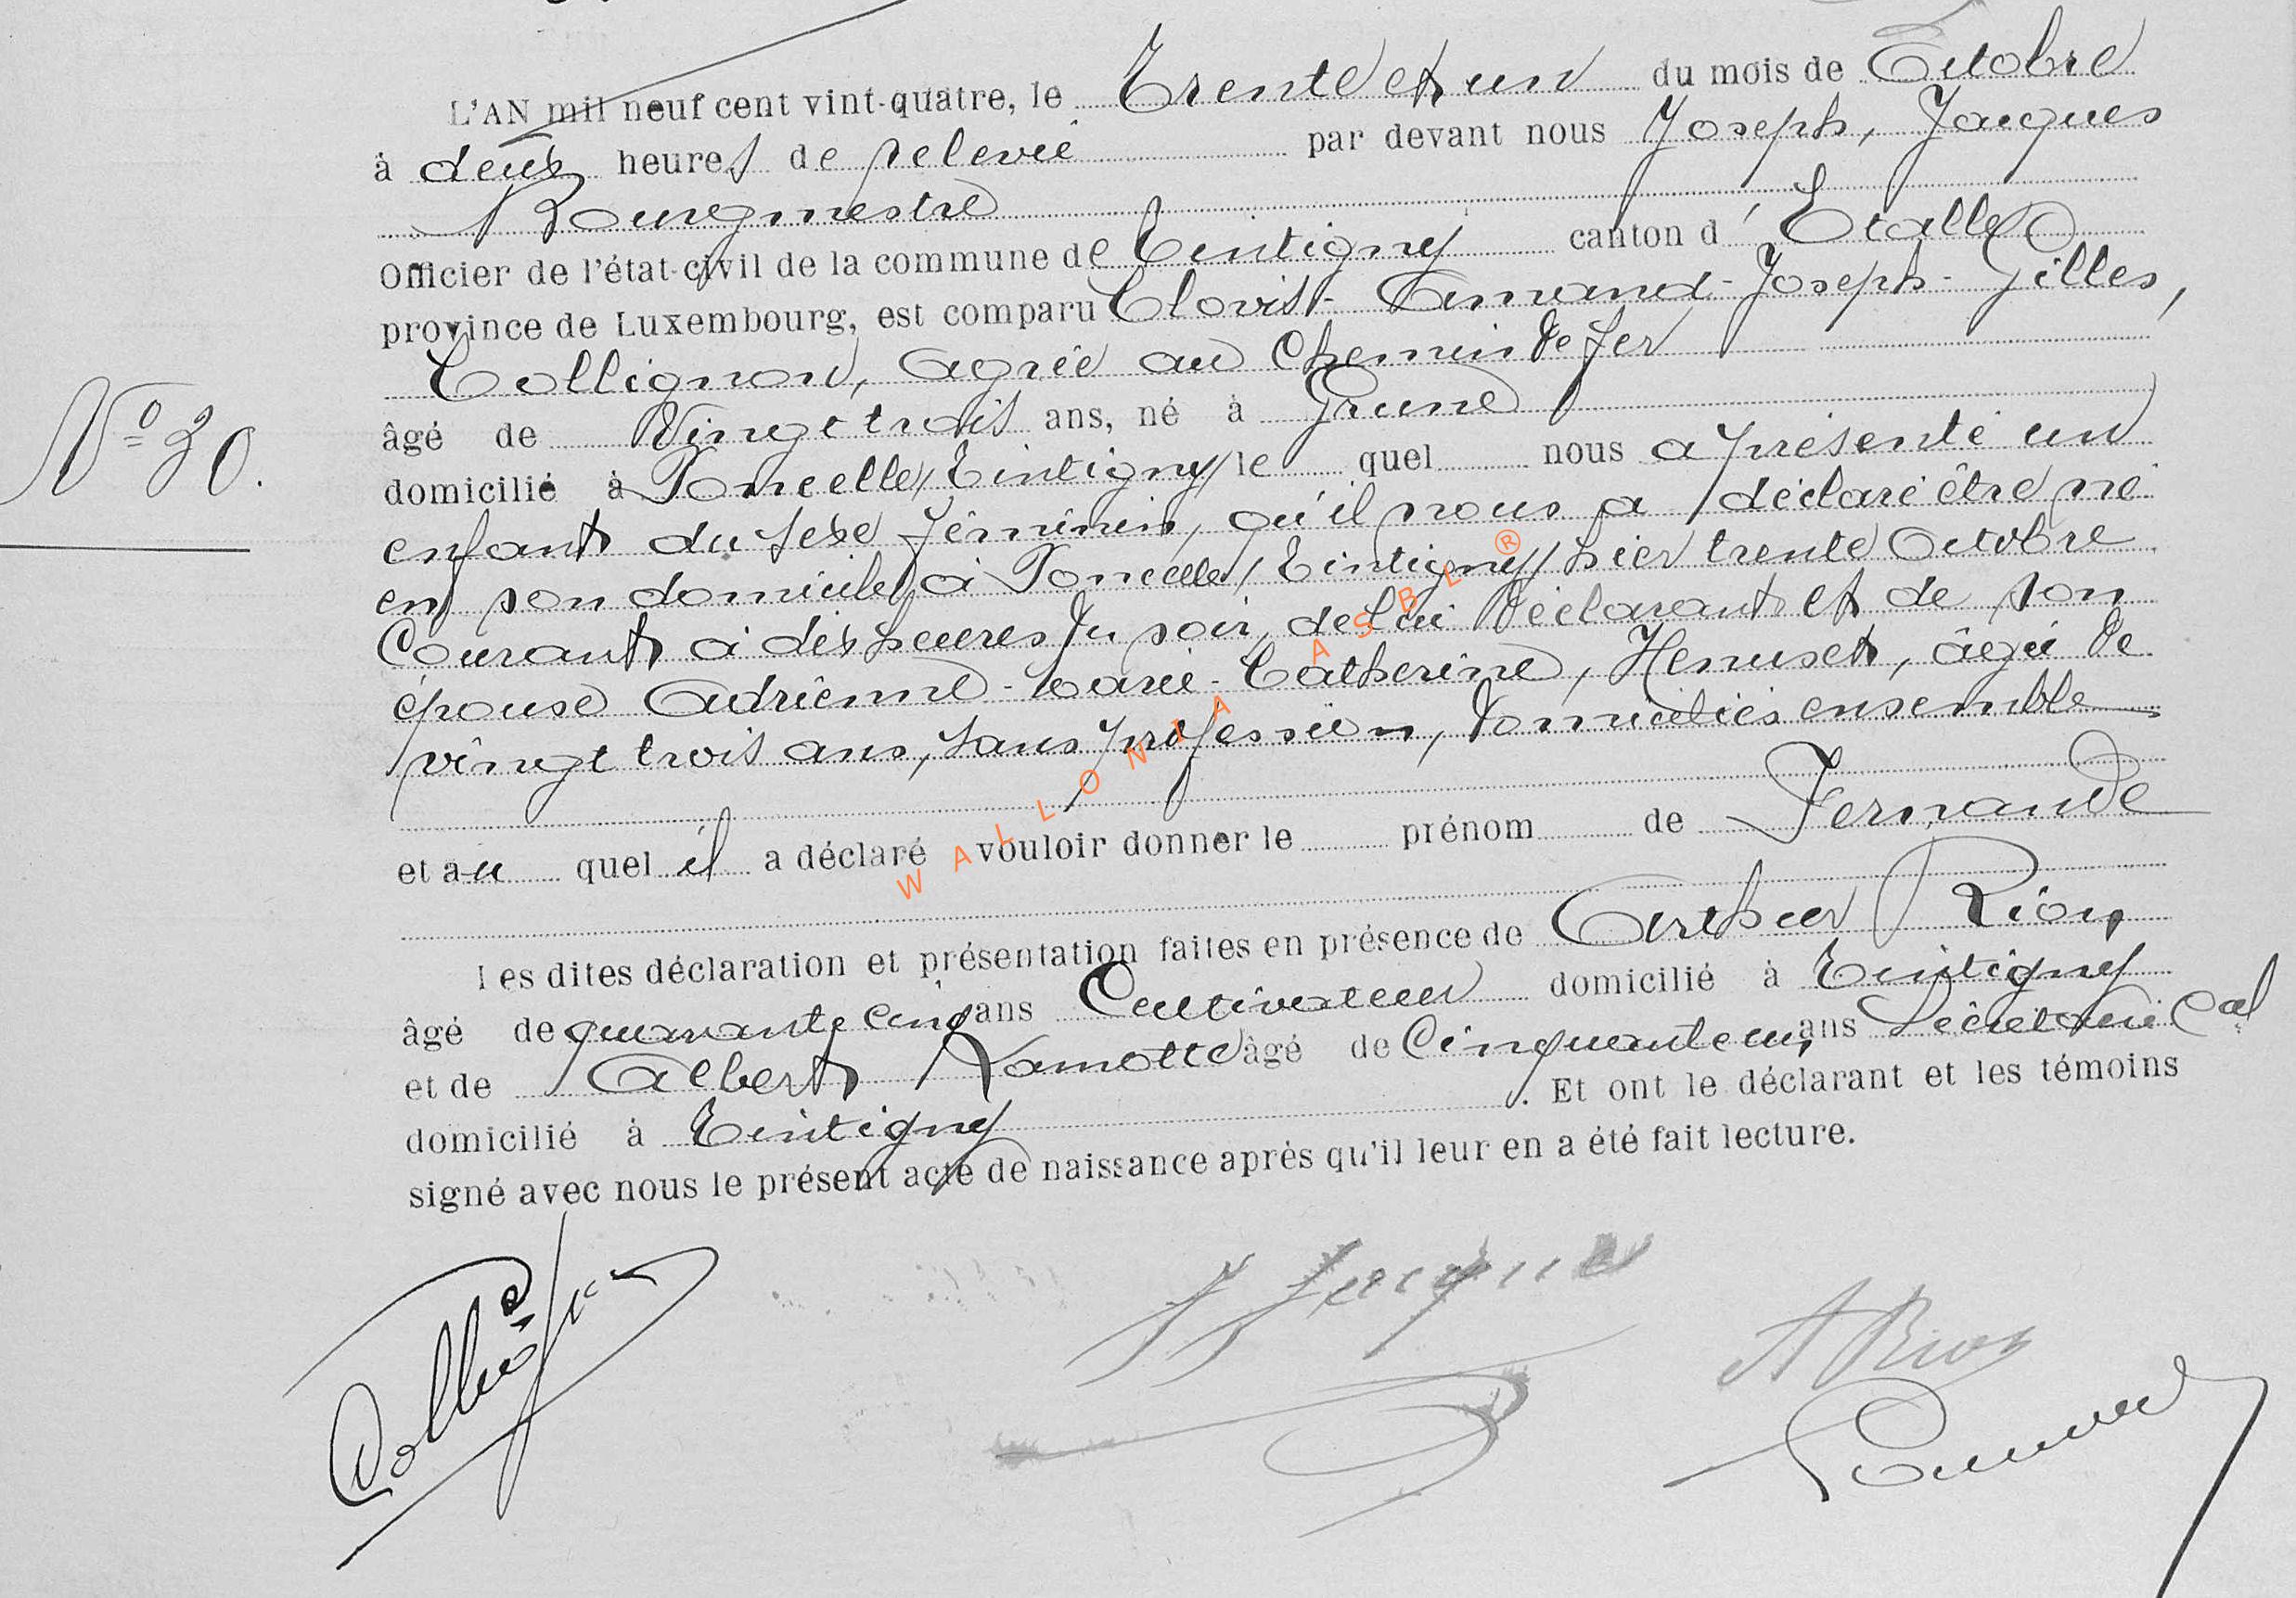 L'AN mil neuf cent vint-quatre, le Trente et un du mois de Octobre
à deux heures de relevée par devant nous Joseph, Jacques
Bourgmestre
Officier de l'état-civil de la commune de Tintigny canton d'Etalle
province de Luxembourg, est comparu Clovis-Armand-Joseph-Gilles,
Collignon, agréé au Chemin de fer
âgé de Vingt trois ans, né à Grune
N° 30.
domicilié à Poncelle/Tintigny/ le quel nous a présenté un
enfant du sexe féminin, qu'il nous a déclaré être né
en son domicile à Poncelle/Tintigny/ hier trente Octobre
Courant à dix heures du soir, de lui déclarant et de son
épouse Adrienne-Marie-Catherine, Henuset, âgée de
vingt trois ans, sans profession, domiciliés ensemble
et au quel il a déclaré vouloir donner le prénom de Fernande
WALLONIA ASBL ®
Les dites déclaration et présentation faites en présence de Arthur Rion
âgé de quarante cinq ans Cultivateur domicilié à Tintigny
et de Albert Lamotte âgé de Cinquante un ans Secrétaire Cal
domicilié à Tintigny . Et ont le déclarant et les témoins
signé avec nous le présent acte de naissance après qu'il leur en a été fait lecture.
Collignon
J Jacques
A Rion